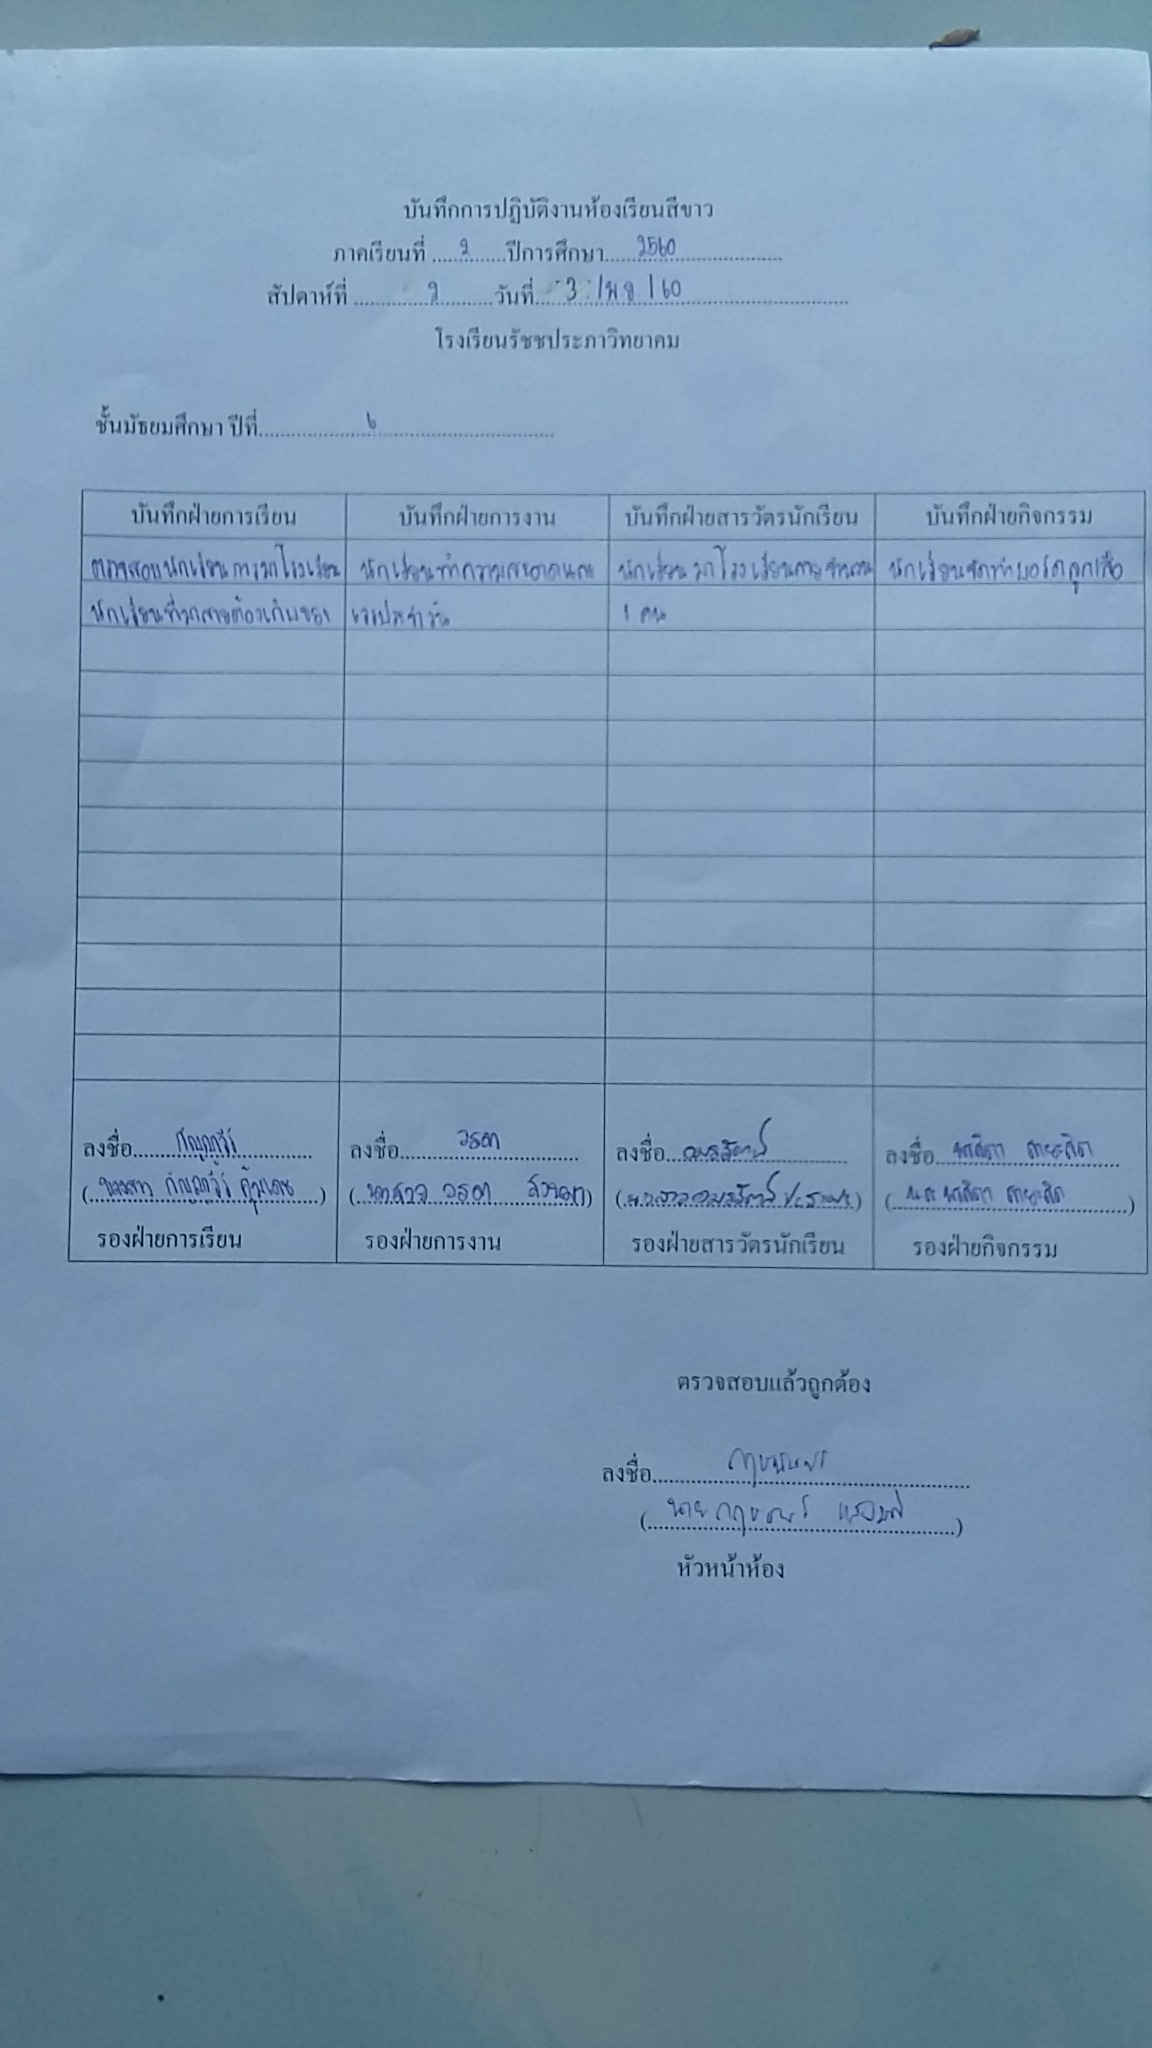 บันทึกการปฏิบัติงานห้องเรียนสีขาว
ภาคเรียนที่ ....2....ปีการศึกษา....2560....
สัปดาห์ที่ ....2....วันที่....3 / พ.ย / 60....
โรงเรียนรัชชประภาวิทยาคม
ชั้นมัธยมศึกษา ปีที่....6....
บันทึกฝ่ายการเรียน บันทึกฝ่ายการงาน บันทึกฝ่ายสารวัตรนักเรียน บันทึกฝ่ายกิจกรรม
ตรวจสอบนักเรียนการมาโรงเรียน นักเรียนทำความสะอาดตาม นักเรียนมาโรงเรียนสายจำนวน นักเรียนจัดทำบอร์ดลูกเสือ
นักเรียนที่มาสายต้องเก็บขยะ เวรประจำวัน 1 คน
ลงชื่อ....กัญญาวีร์.... ลงชื่อ....วรดา.... ลงชื่อ....อมรรัตน์.... ลงชื่อ....
(นางสาว กัญญาวีร์) (นางสาว วรดา) (นางสาวอมรรัตน์) (....)
รองฝ่ายการเรียน รองฝ่ายการงาน รองฝ่ายสารวัตรนักเรียน รองฝ่ายกิจกรรม
ตรวจสอบแล้วถูกต้อง
ลงชื่อ....
(นาย)
หัวหน้าห้อง